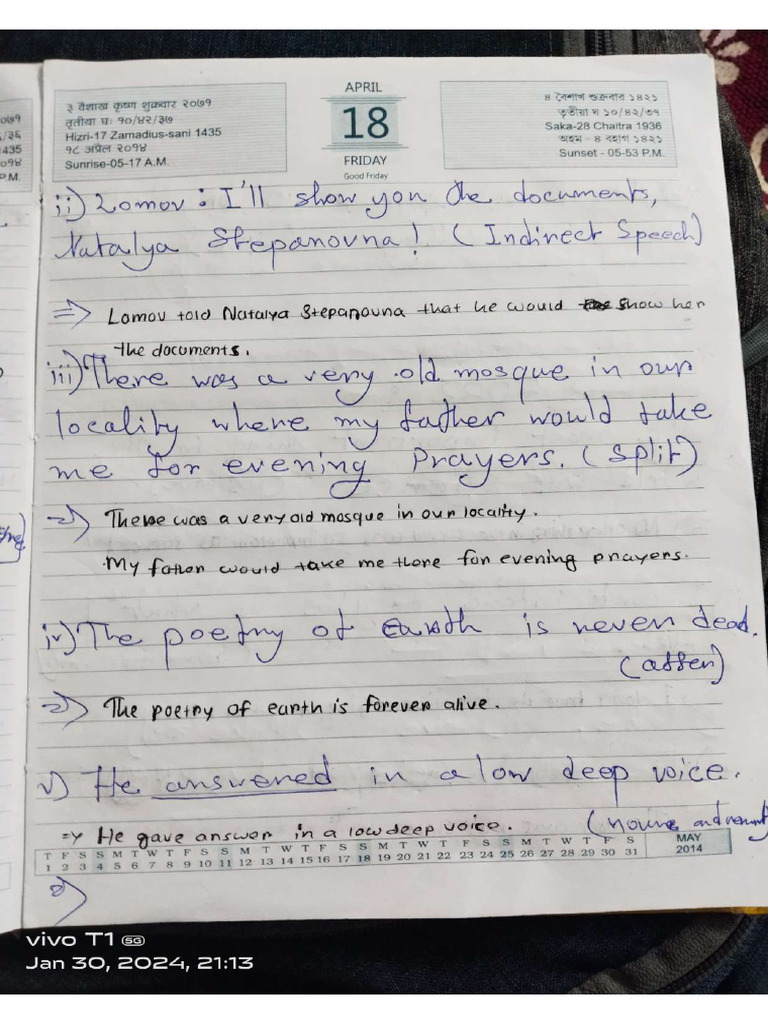 APRIL
३ वैशाख कृष्ण शुक्रवार २०७१
तृतीया घः १०/४२/३७
Hizri-17 Zamadius-sani 1435
१८ अप्रैल २०१४
Sunrise-05-17 A.M.
18
FRIDAY
Good Friday
৪ বৈশাখ শুক্রবার ১৪২১
তৃতীয়া ঘ ১০/৪২/৩৭
Saka-28 Chaitra 1936
অহম - ৪ বহাগ ১৪২১
Sunset - 05-53 P.M.
২০৭१
435
P.M.
ii) Lomov : I'll show you the documents,
Natalya Stepanovna! (Indirect Speech)
=> Lomov told Natalya Stepanovna that he would show her
the documents.
iii) There was a very old mosque in our
locality where my father would take
me for evening Prayers. (Split)
=> There was a very old mosque in our locality.
My father would take me there for evening prayers.
iv) The poetry of Earth is never dead.
(affer)
=> The poetry of earth is forever alive.
v) He answered in a low deep voice.
(Noune and rewrit
=> He gave answer in a low deep voice.
T F S S M T W T F S S M T W T F S S M T W T F S S M T W T F S
1 2 3 4 5 6 7 8 9 10 11 12 13 14 15 16 17 18 19 20 21 22 23 24 25 26 27 28 29 30 31
MAY
2014
vivo T1 5G
Jan 30, 2024, 21:13